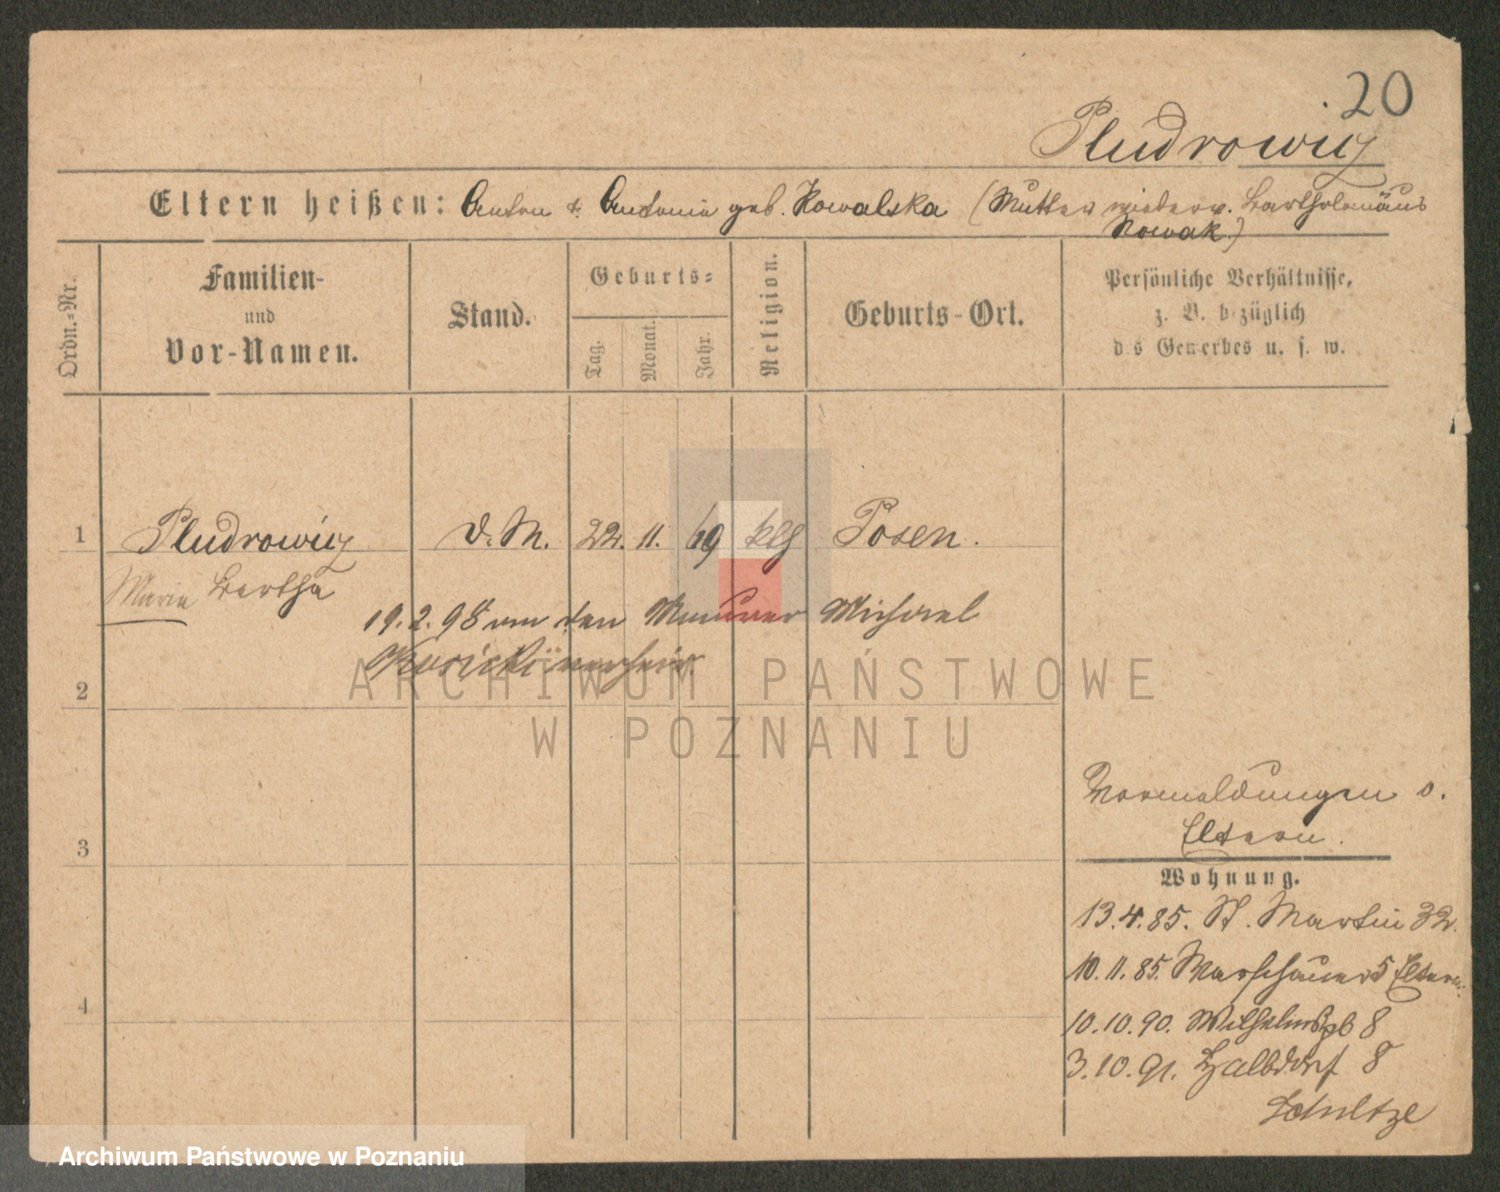 .20
Pludrowicz
Eltern heißen: Anton & Antonie geb. Kowalska (Mutter wiederv. Bartholomäus
Nowak.)
Ordn.-Nr.
Familien-
und
Vor-Namen.
Stand.
Geburts-
Tag.
Monat.
Jahr.
Religion.
Geburts-Ort.
Persönliche Verhältnisse,
z. B. bezüglich
des Gewerbes u. s. w.
1 Pludrowicz D.M. 22. 11. 69 klg Posen.
Marie Bertha
19.2.98 an den Maurer Michael
verheir.
2
3
4
Vormeldungen s.
Eltern.
Wohnung.
13.4.85. St. Martin 32.
10.11.85. Warschauer 5 Eltern.
10.10.90. Wilhelmspl 8
3.10.91. Halbdorf 8
Schultze
ARCHIWUM PAŃSTWOWE
W POZNANIU
Archiwum Państwowe w Poznaniu